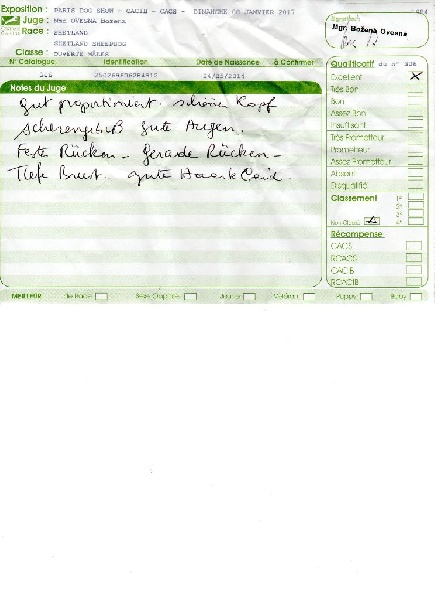 Exposition : PARIS DOG SHOW - CACIB - CACS - DIMANCHE 08 JANVIER 2017
Juge : Mme OVESNA Božena
Race : SHETLAND
SHETLAND SHEEPDOG
Classe : OUVERTE MÂLES
N° Catalogue Identification Date de Naissance à Confirmer
Notes du Juge
gut proportioniert. schöne Kopf
Scherengebiß gute Augen.
Feste Rücken - Gerade Rücken -
Tiefe Brust. gute
Signature
Mgr. Božena Ovesna
Qualificatif du n°
Excellent X
Très Bon
Bon
Assez Bon
Insuffisant
Très Prometteur
Prometteur
Assez Prometteur
Absent
Disqualifié
Classement 1er
2e
3e
Non Classé 4e
Récompense
CACS
RCACS
CACIB
RCACIB
MEILLEUR de Race Sexe Opposé Jeune Vétéran Puppy Baby